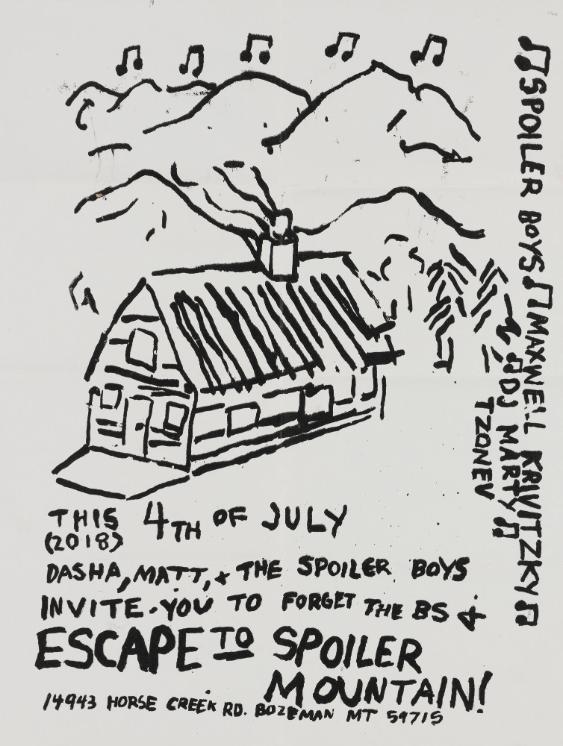 SPOILER BOYS
MAXWELL KRIVITZKY
DJ MARTY
TZONEV
THIS 4TH OF JULY
(2018)
DASHA, MATT, + THE SPOILER BOYS
INVITE YOU TO FORGET THE BS +
ESCAPE TO SPOILER
MOUNTAIN!
14943 HORSE CREEK RD. BOZEMAN MT 59715